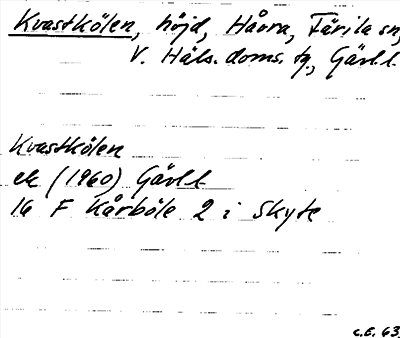 Kvastkölen, höjd, Håvra, Färila sn,
V. Häls. doms. tg., Gävl. l.
Kvastkölen
ek (1960) Gävl. l.
16 F Kårböle 2 i Skyte
C.E. 63.